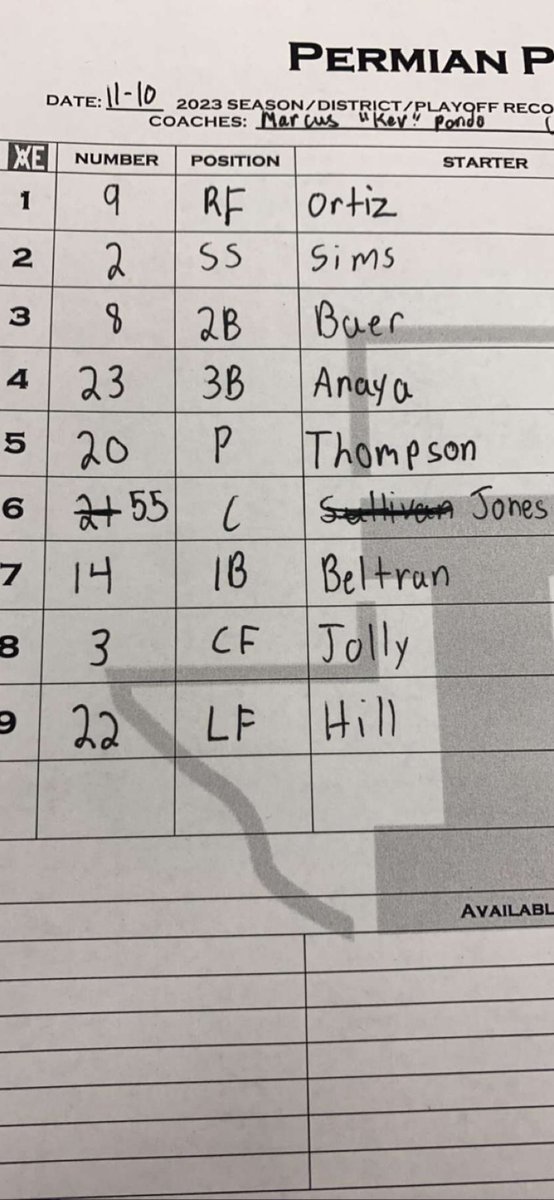 PERMIAN P
DATE: 11-10 2023 SEASON/DISTRICT/PLAYOFF RECO
COACHES: Marcus "Kev" Pondo
NUMBER POSITION STARTER
1 9 RF Ortiz
2 2 SS Sims
3 8 2B Baer
4 23 3B Anaya
5 20 P Thompson
6 21 55 C Sullivan Jones
7 14 1B Beltran
8 3 CF Jolly
9 22 LF Hill
AVAILABL